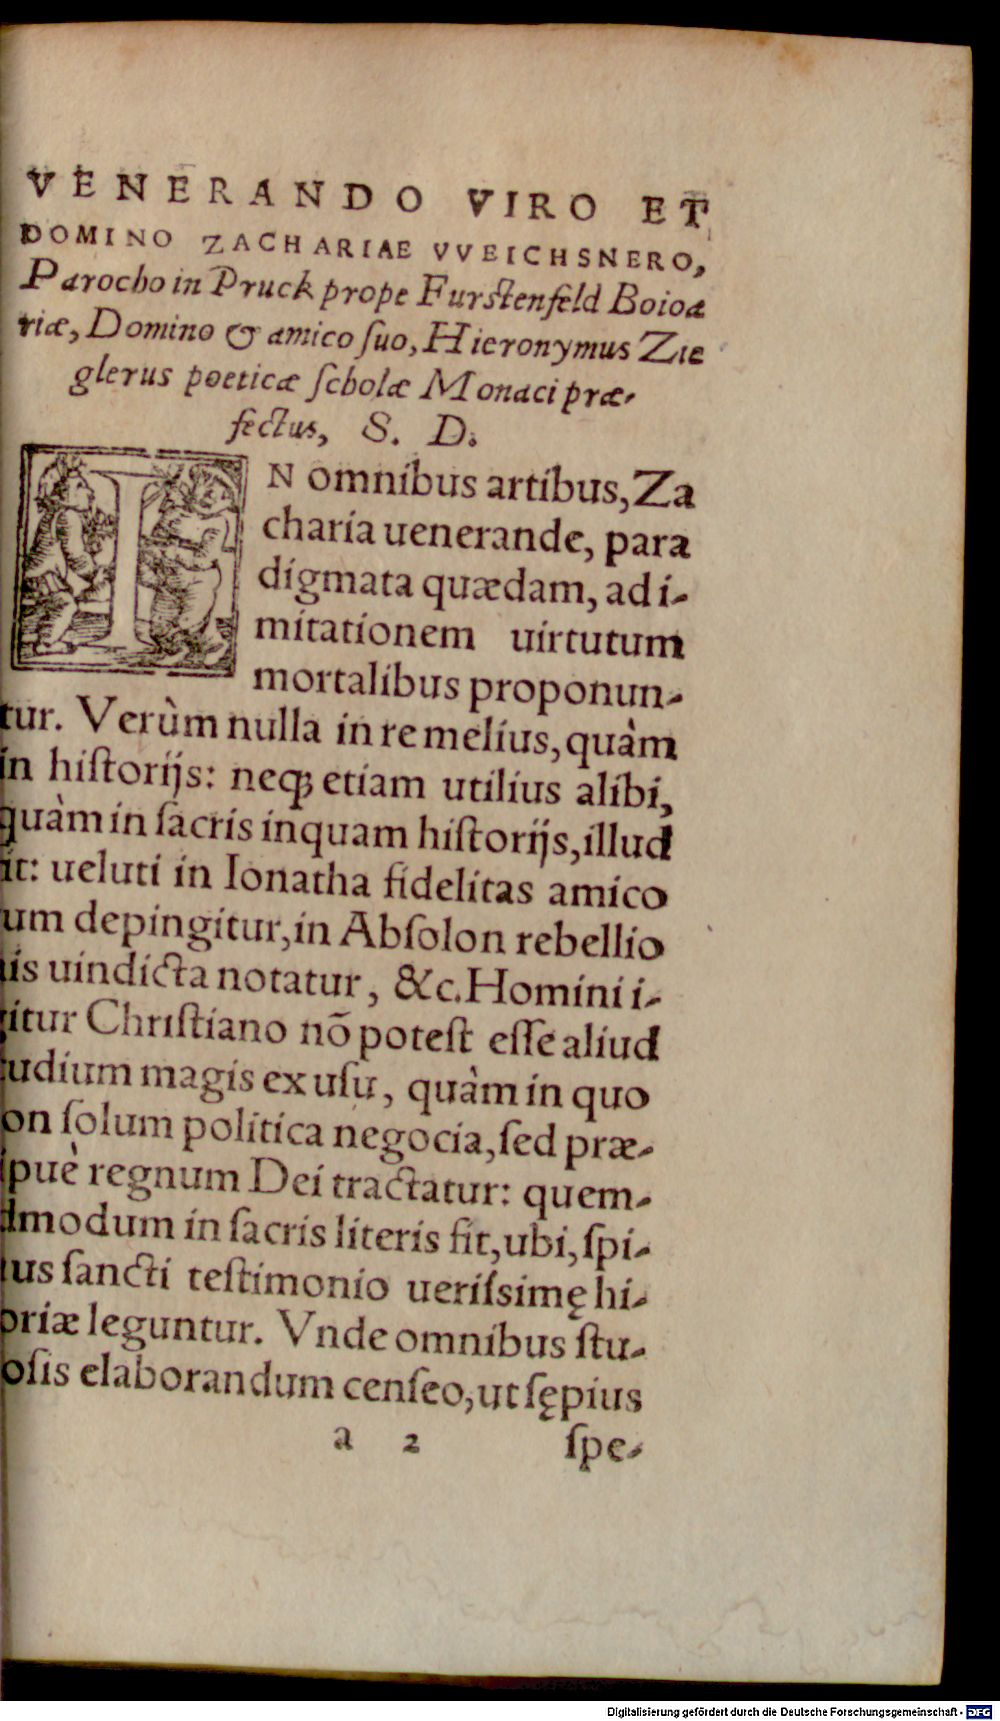 VENERANDO VIRO ET
DOMINO ZACHARIAE VVEICHSNERO,
Parocho in Pruck prope Furſtenfeld Boioa
riæ, Domino & amico ſuo, Hieronymus Zie
glerus poeticæ ſcholæ Monaci præ-
fectus, S. D.
IN omnibus artibus, Za
charia uenerande, para
digmata quædam, ad i-
mitationem uirtutum
mortalibus proponun-
tur. Verùm nulla in re melius, quàm
in hiſtorijs: neqꝫ etiam utilius alibi,
quàm in ſacris inquam hiſtorijs, illud
it: ueluti in Ionatha fidelitas amico
um depingitur, in Abſolon rebellio
is uindicta notatur, &c. Homini i-
itur Chriſtiano nõ poteſt eſſe aliud
udium magis ex uſu, quàm in quo
on ſolum politica negocia, ſed præ-
ipuè regnum Dei tractatur: quem-
dmodum in ſacris literis fit, ubi, ſpi-
us ſancti teſtimonio ueriſsimę hi-
oriæ leguntur. Vnde omnibus ſtu-
oſis elaborandum cenſeo, ut ſępius
a 2 ſpe-
Digitalisierung gefördert durch die Deutsche Forschungsgemeinschaft - DFG